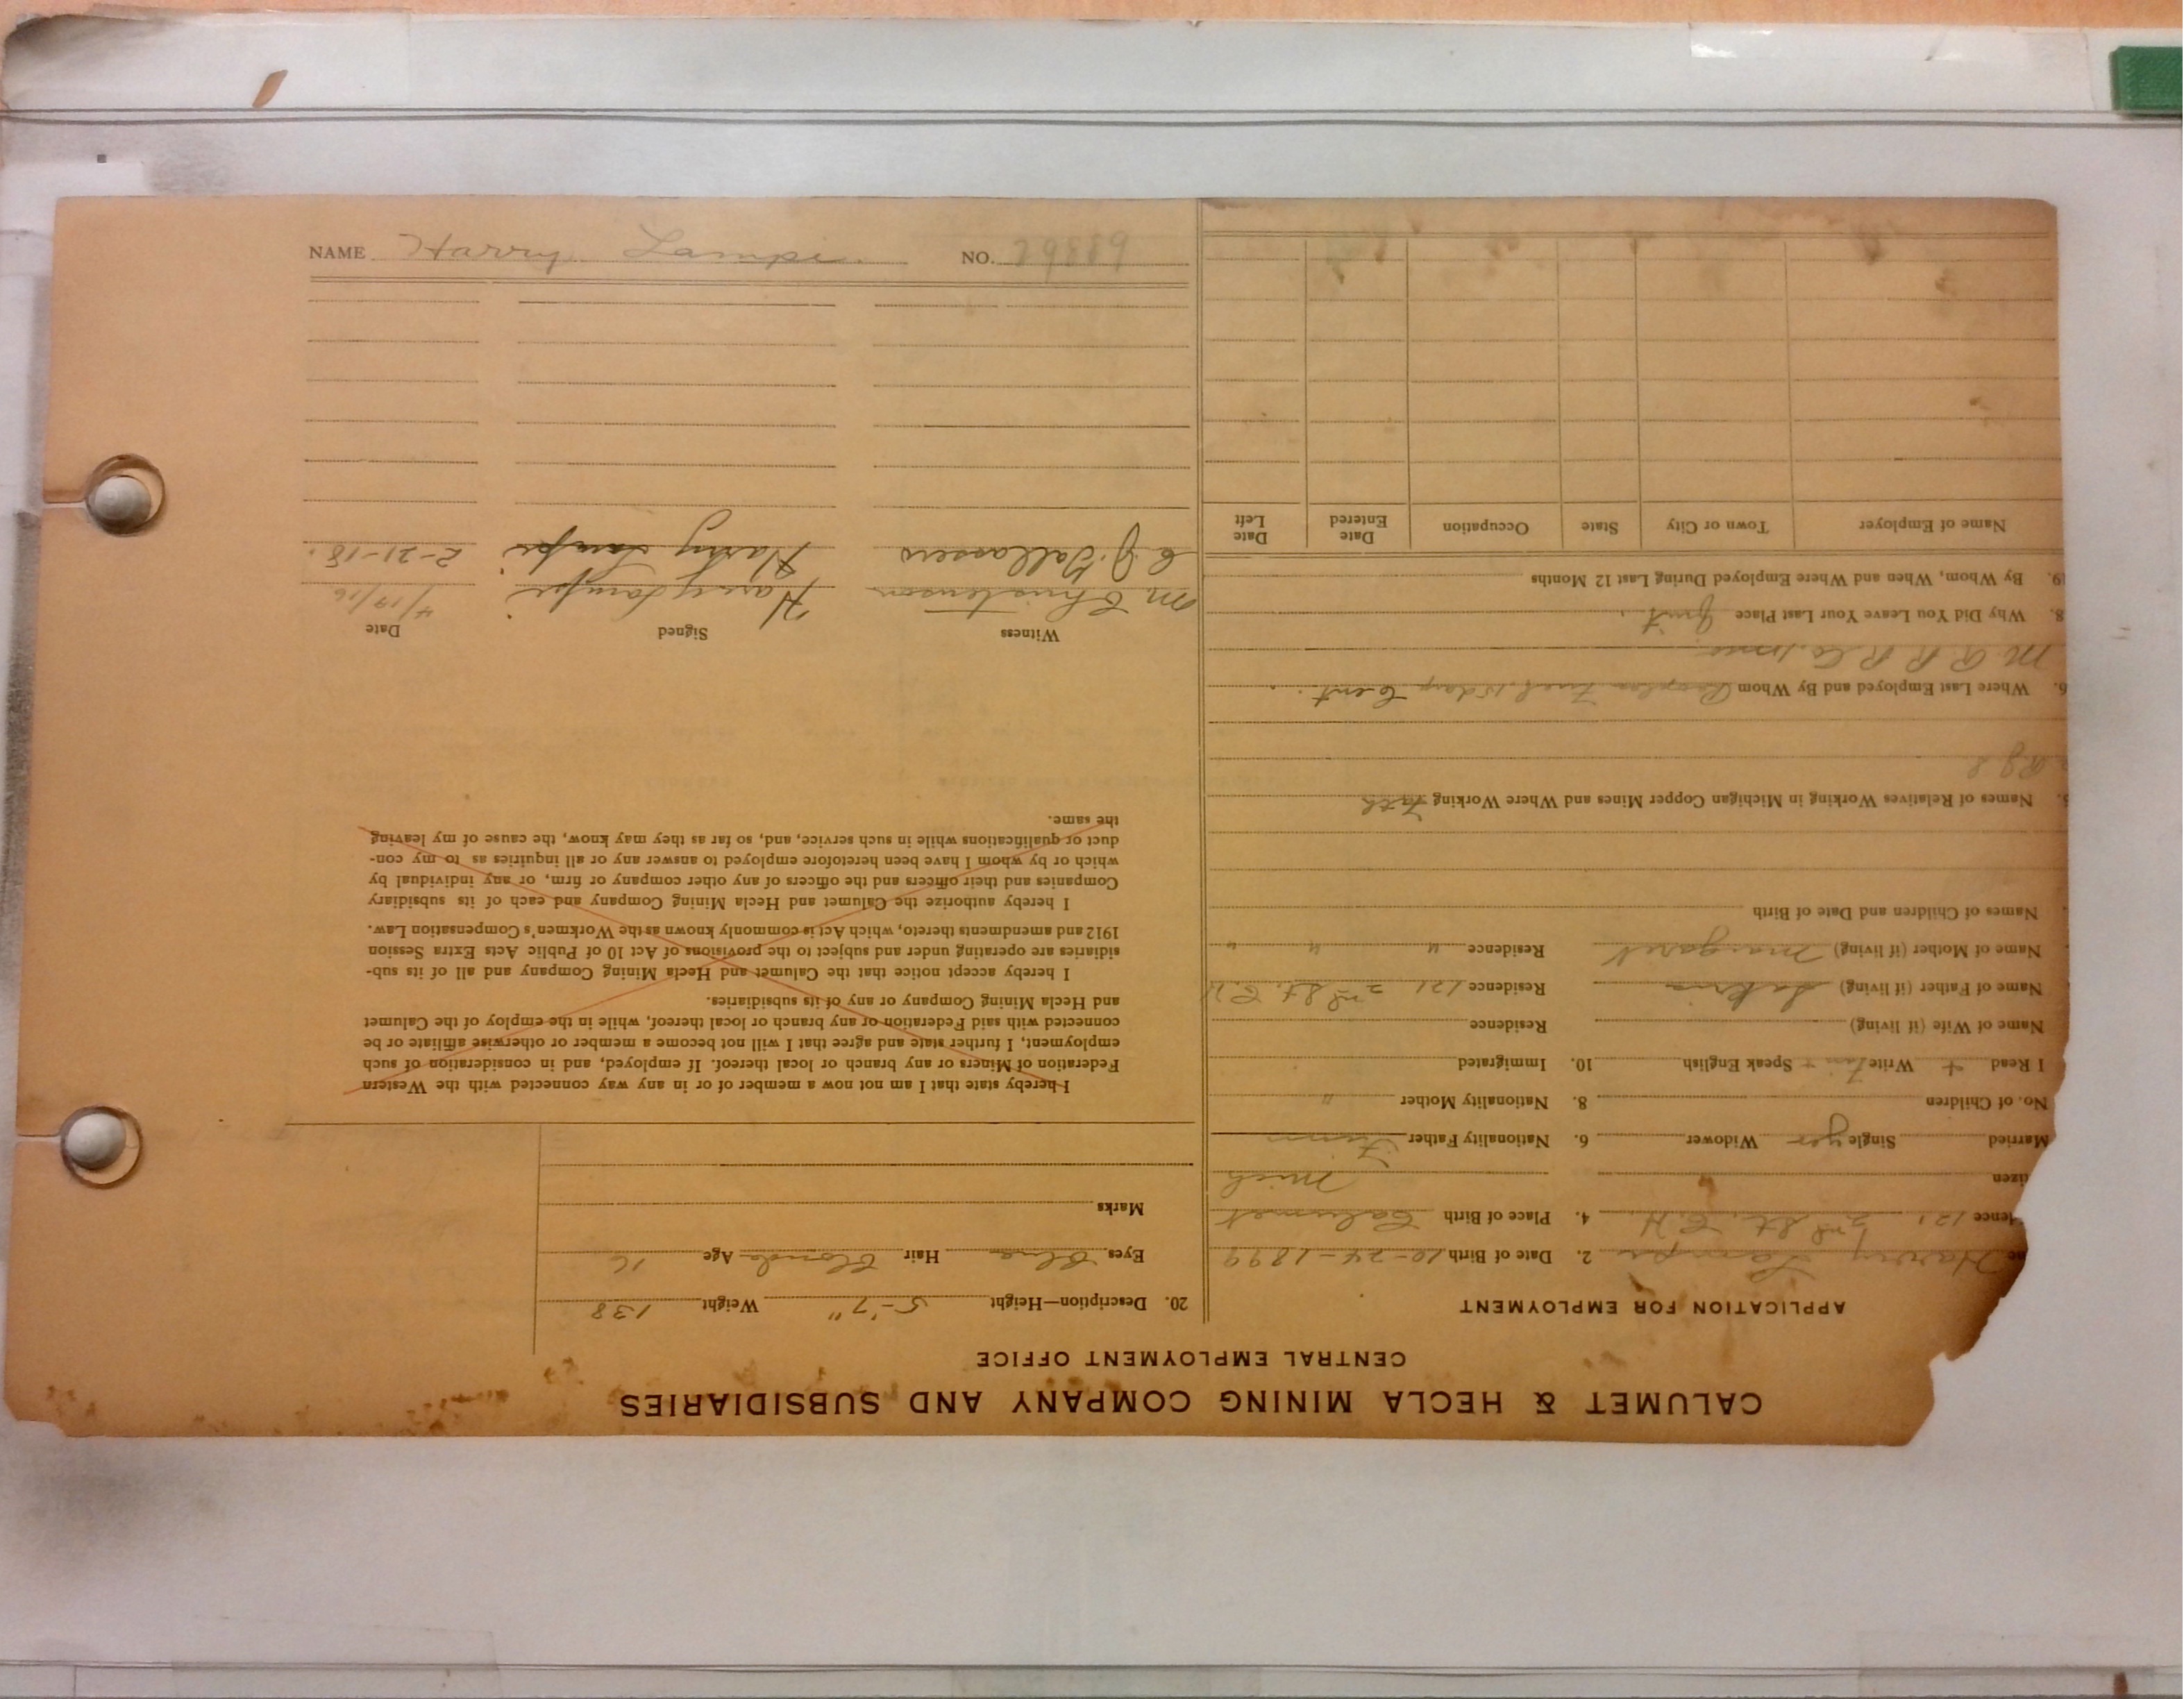 CALUMET & HECLA MINING COMPANY AND SUBSIDIARIES
CENTRAL EMPLOYMENT OFFICE
APPLICATION FOR EMPLOYMENT
Harry Lampi 2. Date of Birth 10-24-1899
dence 121 2nd St. 4. Place of Birth Calumet
izen Mich
Married Single yes Widower 6. Nationality Father Finn
No. of Children 8. Nationality Mother "
I Read + Write Speak English 10. Immigrated
Name of Wife (if living) Residence
Name of Father (if living) Residence 121 2nd St.
Name of Mother (if living) Margaret Residence " " "
Names of Children and Date of Birth
Names of Relatives Working in Michigan Copper Mines and Where Working
6. Where Last Employed and By Whom
8. Why Did You Leave Your Last Place Quit
19. By Whom, When and Where Employed During Last 12 Months
Name of Employer Town or City State Occupation Date Entered Date Left
20. Description—Height 5-7" Weight 138
Eyes Blue Hair Blonde Age 16
Marks
I hereby state that I am not now a member of or in any way connected with the Western
Federation of Miners or any branch or local thereof. If employed, and in consideration of such
employment, I further state and agree that I will not become a member or otherwise affiliate or be
connected with said Federation or any branch or local thereof, while in the employ of the Calumet
and Hecla Mining Company or any of its subsidiaries.
I hereby accept notice that the Calumet and Hecla Mining Company and all of its sub-
sidiaries are operating under and subject to the provisions of Act 10 of Public Acts Extra Session
1912 and amendments thereto, which Act is commonly known as the Workmen's Compensation Law.
I hereby authorize the Calumet and Hecla Mining Company and each of its subsidiary
Companies and their officers and the officers of any other company or firm, or any individual by
which or by whom I have been heretofore employed to answer any or all inquiries as to my con-
duct or qualifications while in such service, and, so far as they may know, the cause of my leaving
the same.
Witness Signed Date
M Christenson Harry Lampi 4/19/16
Harry Lampi 2-21-18.
NAME Harry Lampi. NO.